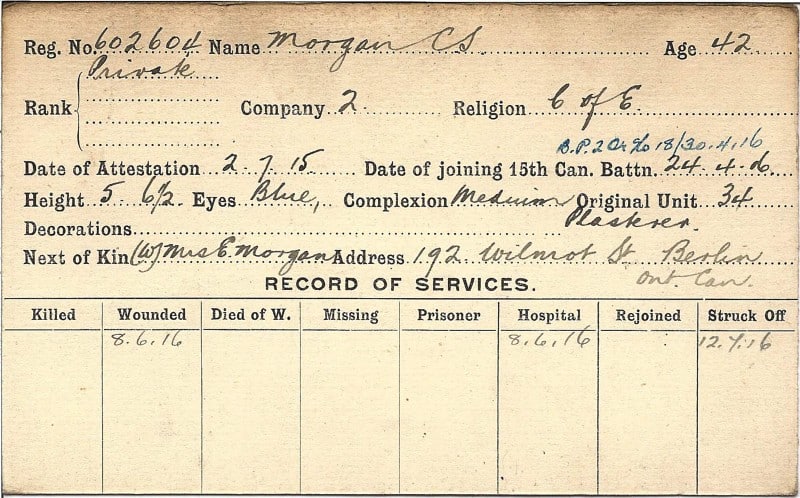 Reg. No. 602604 Name Morgan C S. Age 42
Private
Rank Company 2 Religion C of E.
B.P. 2 Or % 18/30.4.16
Date of Attestation 2.7.15 Date of joining 15th Can. Battn. 24.4.16
Height 5 6½ Eyes Blue, Complexion Medium Original Unit 34
Decorations Plasterer.
Next of Kin (W) Mrs E. Morgan Address 192 Wilmot St Berlin
Ont. Can.
RECORD OF SERVICES.
Killed Wounded Died of W. Missing Prisoner Hospital Rejoined Struck Off
8.6.16 8.6.16 12.7.16